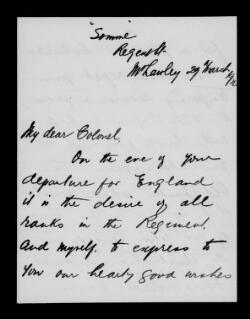 "Somme"
Regent St.
Mt Lawley 29 March
My dear Colonel.
On the eve of your
departure for England
it is the desire of all
ranks in the Regiment.
And myself. to express to
you our hearty good wishes